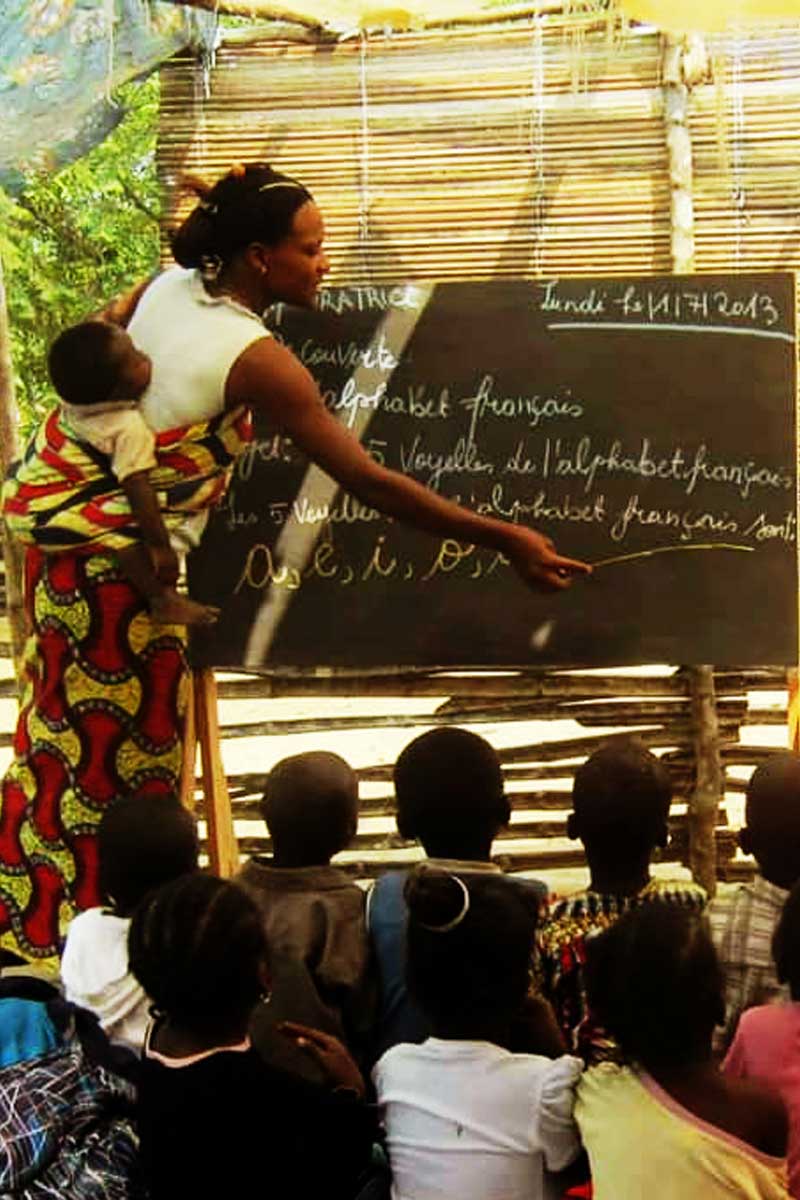 RATRICE Lundi le 1/7/2013
couverte
alphabet français
5 Voyelles de l'alphabet français
les 5 Voyelles l'alphabet français sont:
a, e, i, o,